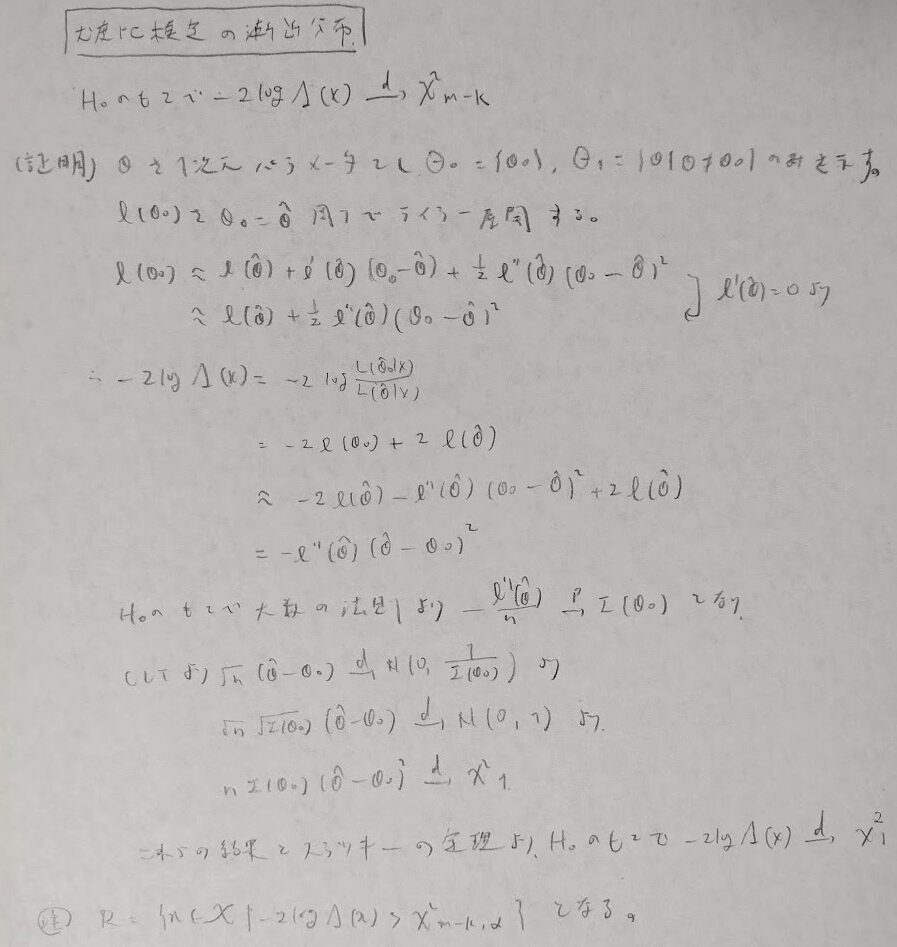 尤度比検定の漸近分布
H₀のもとで -2logΛ(x) →d χ²m-k
(証明) θを1次元パラメータとし Θ₀ = {θ₀}, Θ₁ = {θ|θ≠θ₀} のみを示す。
l(θ₀)をθ₀=θ̂周りでテイラー展開する。
l(θ₀) ≈ l(θ̂) + l'(θ̂)(θ₀-θ̂) + 1/2 l''(θ̂)(θ₀-θ̂)²
≈ l(θ̂) + 1/2 l''(θ̂)(θ₀-θ̂)² l'(θ̂)=0より
∴ -2logΛ(x) = -2log L(θ̂₀|x)/L(θ̂|x)
= -2l(θ₀) + 2l(θ̂)
≈ -2l(θ̂) - l''(θ̂)(θ₀-θ̂)² + 2l(θ̂)
= -l''(θ̂)(θ̂-θ₀)²
H₀のもとで大数の法則より - l''(θ̂)/n →p I(θ₀) となり,
CLTより √n(θ̂-θ₀) →d N(0, 1/I(θ₀)) より
√n√I(θ₀)(θ̂-θ₀) →d N(0, 1) より,
nI(θ₀)(θ̂-θ₀)² →d χ²1
これらの結果とスラツキーの定理より, H₀のもとで -2logΛ(x) →d χ²1
注 R = {x∈X | -2logΛ(x) > χ²m-k,α} となる。